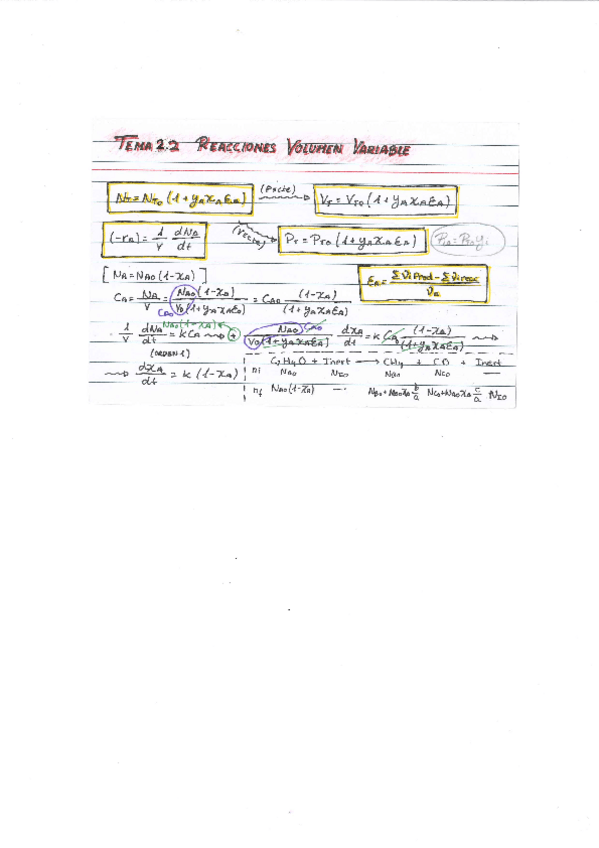 TEMA 2.2 REACCIONES VOLUMEN VARIABLE
N_T = N_T0 (1 + y_A x_A ε_A) (P=cte) V_T = V_T0 (1 + y_A x_A ε_A)
(-r_A) = 1/V dN_A/dt (V=cte) P_T = P_T0 (1 + y_A x_A ε_A)
[N_A = N_A0 (1 - x_A)] ε_A = Σ νi Prod - Σ νi reac / ν_A
C_A = N_A/V = N_A0 (1 - x_A) / V_0 (1 + y_A x_A ε_A) = C_A0 (1 - x_A) / (1 + y_A x_A ε_A)
C_A0
N_A0 (1 - x_A) C_A0
1/V dN_A/dt = k C_A N_A0 / V_0 (1 + y_A x_A ε_A) dx_A/dt = k C_A0 (1 - x_A) / (1 + y_A x_A ε_A)
(ORDEN 1)
dx_A/dt = k (1 - x_A)
C2H4O + Inert → CH4 + CO + Inert
ni N_A0 N_I0 N_B0 N_C0 —
nf N_A0 (1 - x_A) — N_B0 + N_A0 x_A b/a N_C0 + N_A0 x_A c/a N_I0